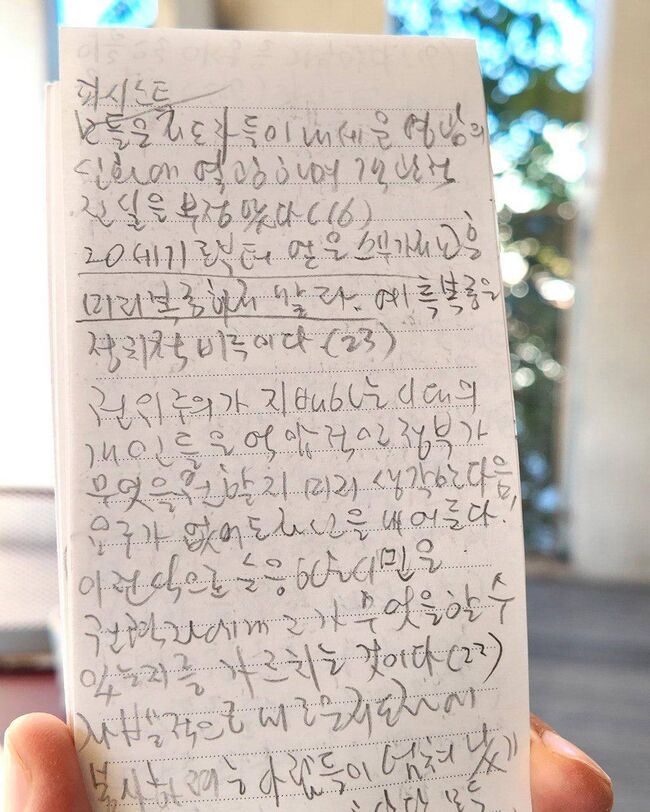 파시스트
들은 지도자들이 내세운 영광의
신화에 열광하며 객관적
진실을 부정했다(16)
20세기로부터 얻을 스무가지 교훈
미리 복종하지 말라. 예측복종은
정치적 비극이다(23)
권위주의가 지배하는 시대의
개인들은 억압적인 정부가
무엇을 원할지 미리 생각한 다음,
요구가 없어도 헌신을 내어준다.
이런 식으로 순응하는 시민은
권력자에게 그가 무엇을 할 수
있는지를 가르치는 것이다(23)
자발적으로 새로운 지도자에
봉사하려는 사람들이 넘쳐났기